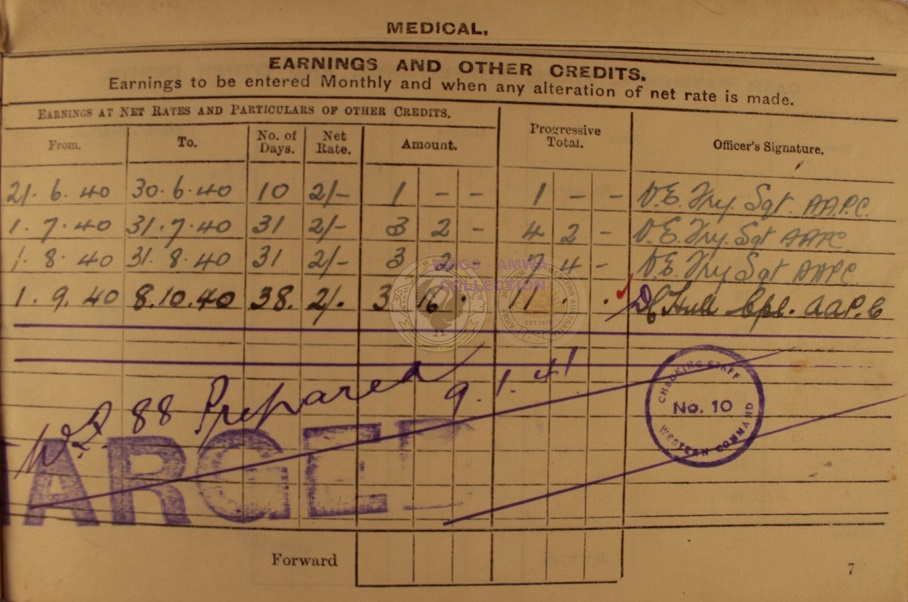 MEDICAL.
EARNINGS AND OTHER CREDITS.
Earnings to be entered Monthly and when any alteration of net rate is made.
EARNINGS AT NET RATES AND PARTICULARS OF OTHER CREDITS.
From. To. No. of Days. Net Rate. Amount. Progressive Total. Officer's Signature.
21.6.40 30.6.40 10 2/- 1 - - 1 - - D.E. Fry Sgt. AAPC.
1.7.40 31.7.40 31 2/- 3 2 - 4 2 - D.E. Fry Sgt AAPC
1.8.40 31.8.40 31 2/- 3 2 - 7 4 - D.E. Fry Sgt AAPC.
1.9.40 8.10.40 38. 2/- 3 16 . 11 . . Hull Cpl. AAP.C
COLLECTION
88 Prepared 9.1.41
CHECKING STAFF
No. 10
WESTERN COMMAND
ARGED
Forward
7